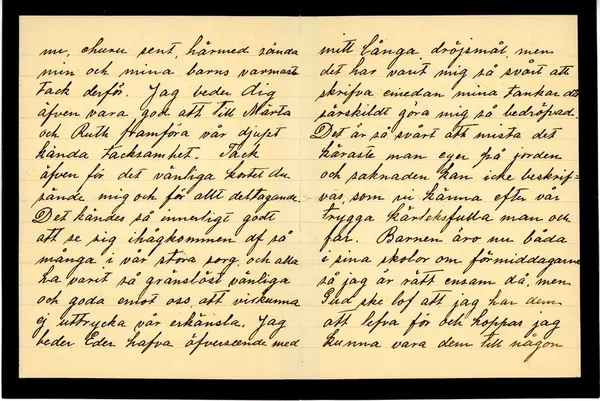 nu, ehuru sent, härmed sända
min och mina barns varmaste
tack derför. Jag beder dig
äfven vara god att till Märta
och Ruth framföra vår djupt
kända tacksamhet. Tack
äfven för det vänliga kortet du
sände mig och för allt deltagande.
Det kändes så innerligt godt
att se sig ihågkommen af så
många i vår stora sorg, och alla
ha varit så gränslöst vänliga
och goda emot oss, att vi kunna
ej uttrycka vår erkänsla. Jag
beder Eder hafva öfverseende med
mitt långa dröjsmål, men
det har varit mig så svårt att
skrifva emedan mina tankar då
särskildt göra mig så bedröfvad.
Det är så svårt att mista det
käraste man eger på jorden
och saknaden kan icke beskrif-
vas, som vi känna efter vår
trygga kärleksfulla man och
far. Barnen äro nu båda
i sina skolor om förmiddagarne
så jag är rätt ensam då, men
Gud ske lof att jag har dem
att lefva för och hoppas jag
kunna vara dem till någon